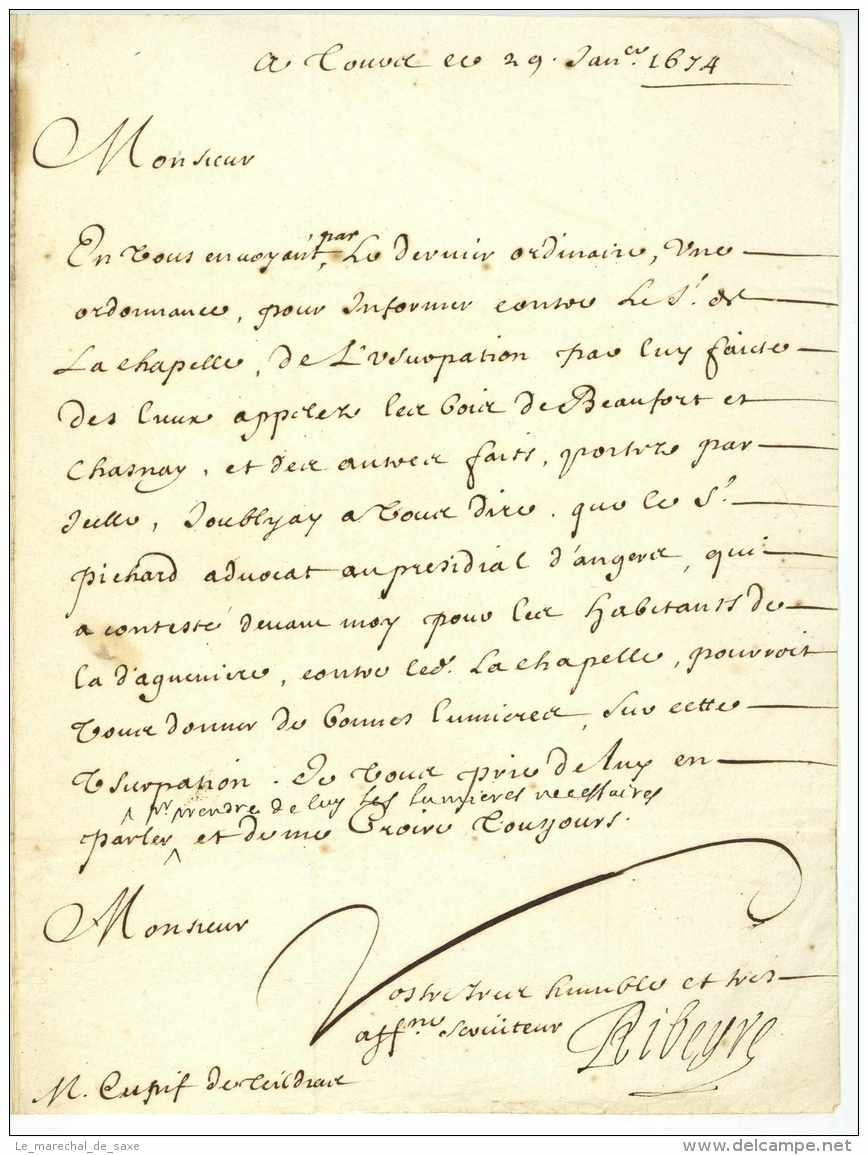 A Tours ce 29. Janer. 1674
Monsieur
En vous envoyant par le dernier ordinaire, une
ordonnance, pour Informer contre le Sr. de
La Chapelle, de L'usurpation par luy faicte
des lieux appelez les bois de Beaufort et
Chasnay, et des autres faits, portez par
Icelle, J'oublyay a vous dire. que le Sr.
pichard advocat au presidial d'angers, qui
a contesté devant moy pour les habitants de
la d'agueniere, contre led. La Chapelle, pourroit
vous donner de bonnes lumieres, sur cette
Usurpation. Je vous prie de luy en
pr. prendre de luy les lumieres necessaires
parler et de me Croire Tousjours.
Monsieur
Vostre tres humble et tres
affne. serviteur Ribeyre
M. Cupif de Teildras
Le_marechal_de_saxe
www.delcampe.net